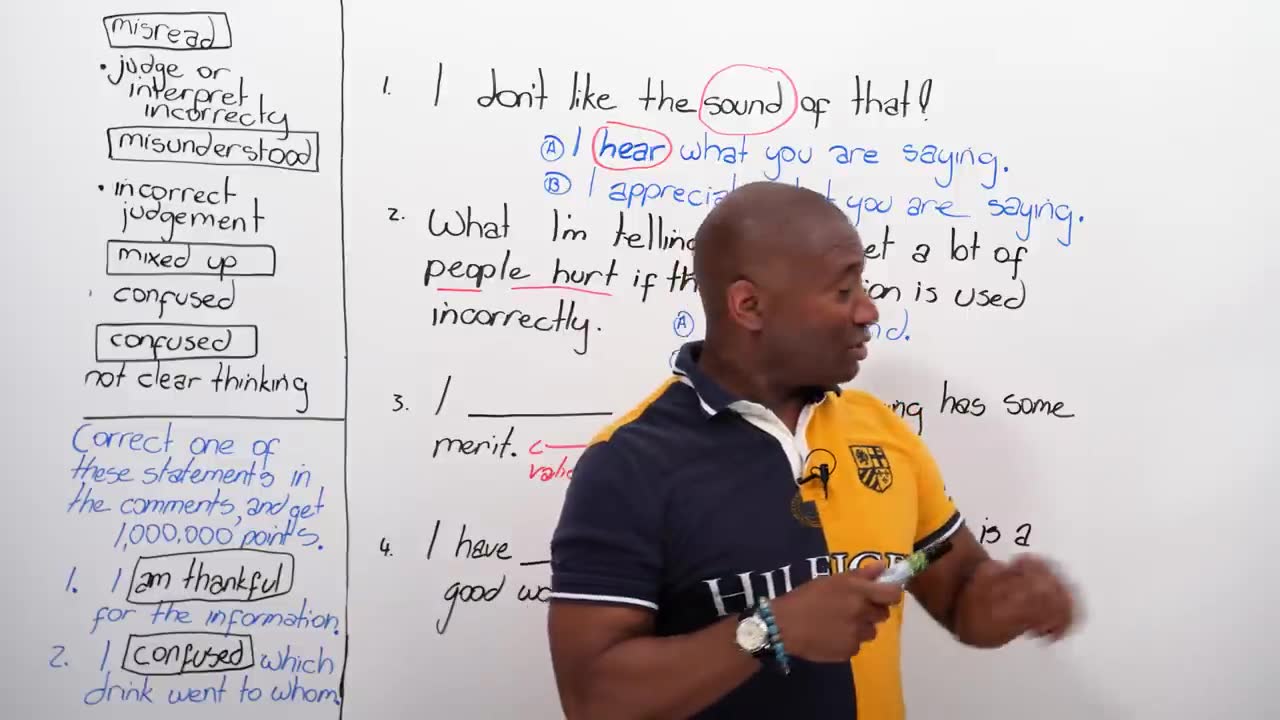 misread
• judge or
interpret
incorrecty
misunderstood
• incorrect
judgement
mixed up
confused
confused
not clear thinking
Correct one of
these statements in
the comments, and get
1,000,000 points.
1. I am thankful
for the information.
2. I confused which
drink went to whom.
1. I don't like the sound of that!
A I hear what you are saying.
B I you are saying.
2. What I'm a lot of
people hurt if is used
incorrectly.
A
3. I ________ has some
merit.
4. I have is a
good
HILFIGER